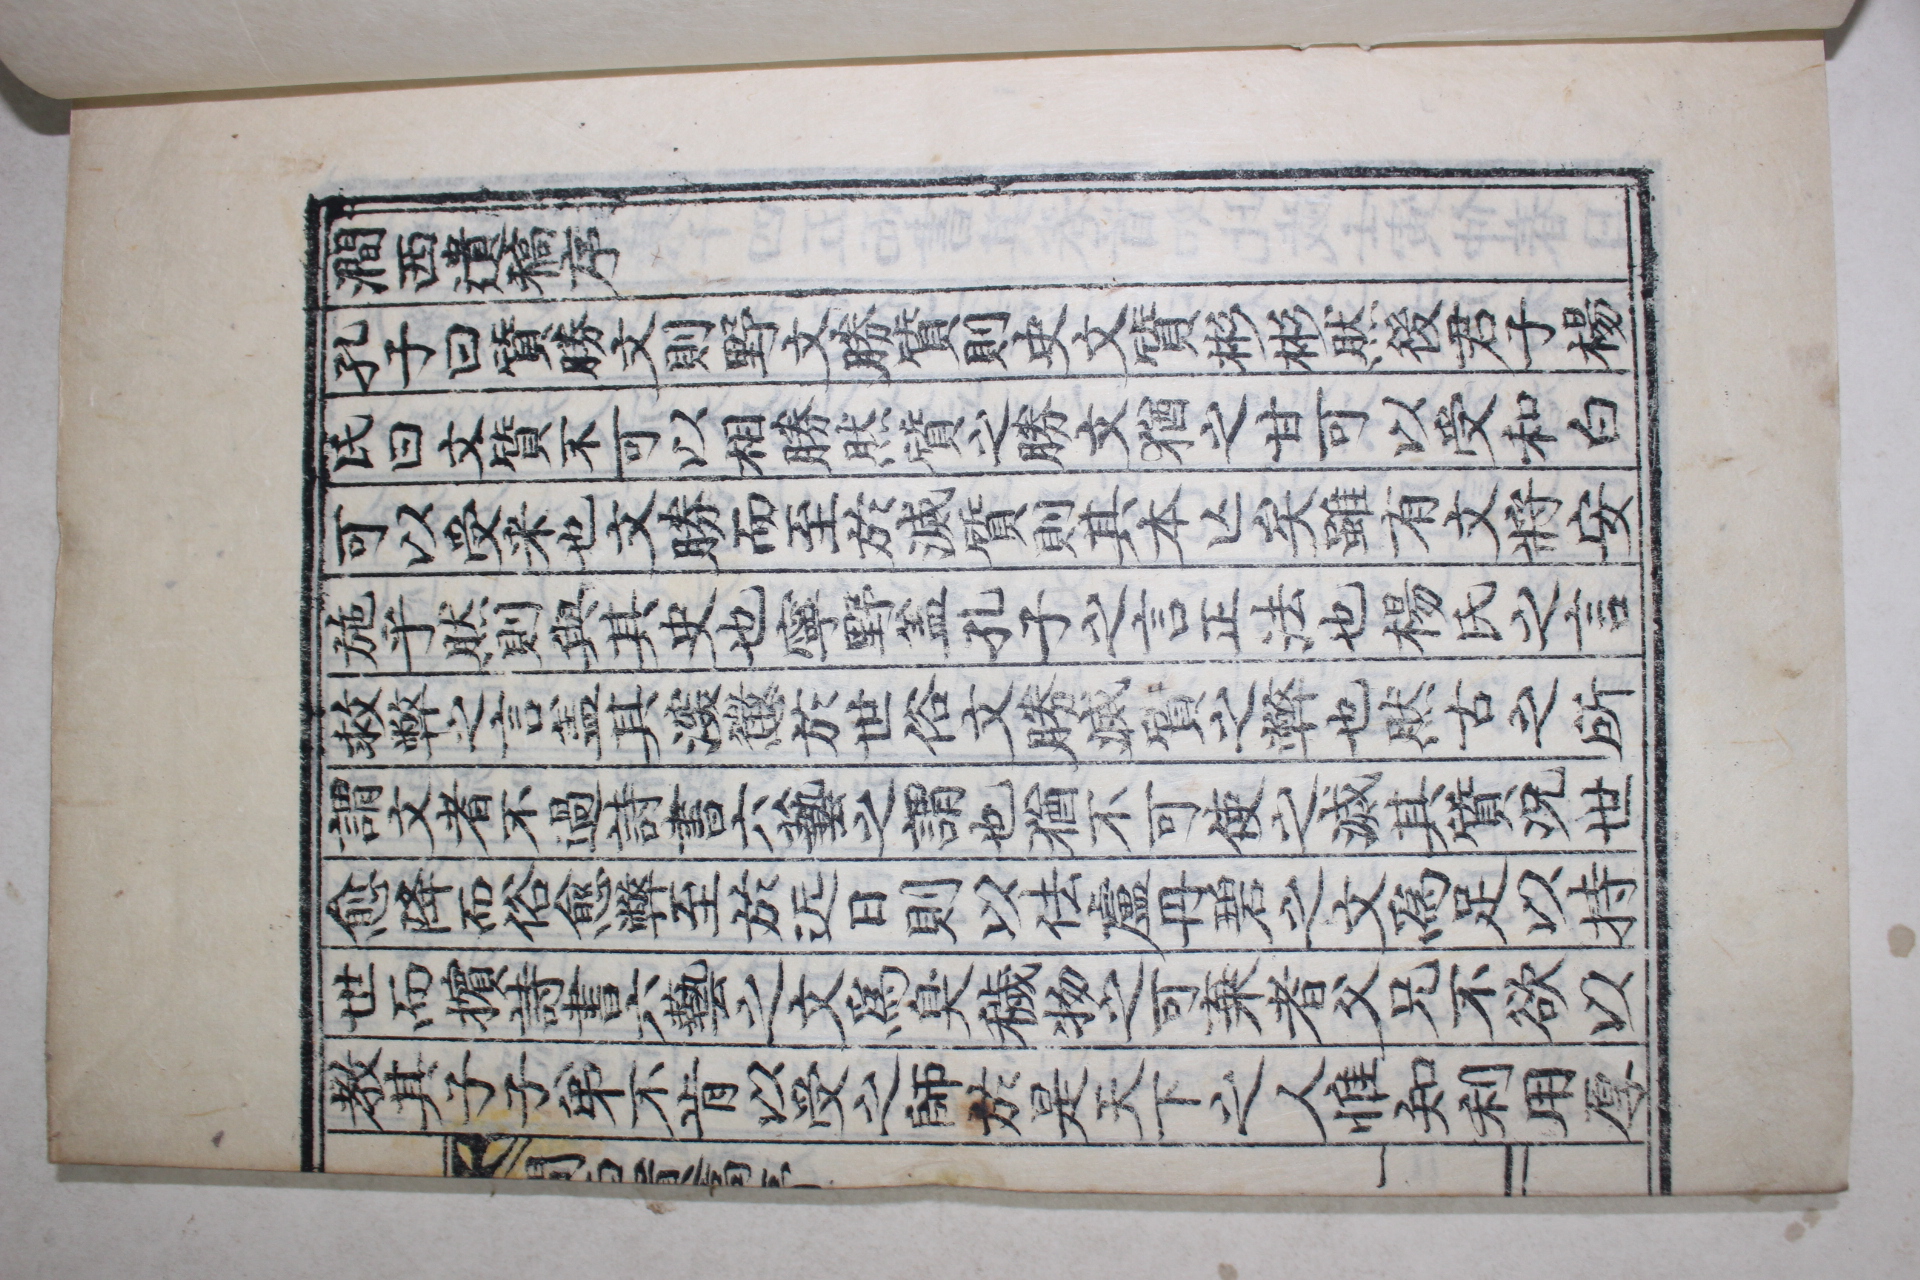 澗西遺稿序
孔子曰質勝文則野文勝質則史文質彬彬然後君子楊
氏曰文質不可以相勝然質之勝文猶之甘可以受和白
可以受采也文勝而至於滅質則其本亡矣雖有文將安
施乎然則與其史也寧野盖孔子之言正法也楊氏之言
救弊之言盖其深懲於世俗文勝滅質之弊也然古之所
謂文者不過詩書六藝之謂也猶不可使之滅其質况世
愈降而俗愈弊至於近日則以佉盧丹碧之文爲足以持
世而擯詩書六藝之文爲臭穢物之可棄者父兄不欲以
教其子子弟不肯以受之師於是天下之人惟知利用厚
澗西遺稿序
一